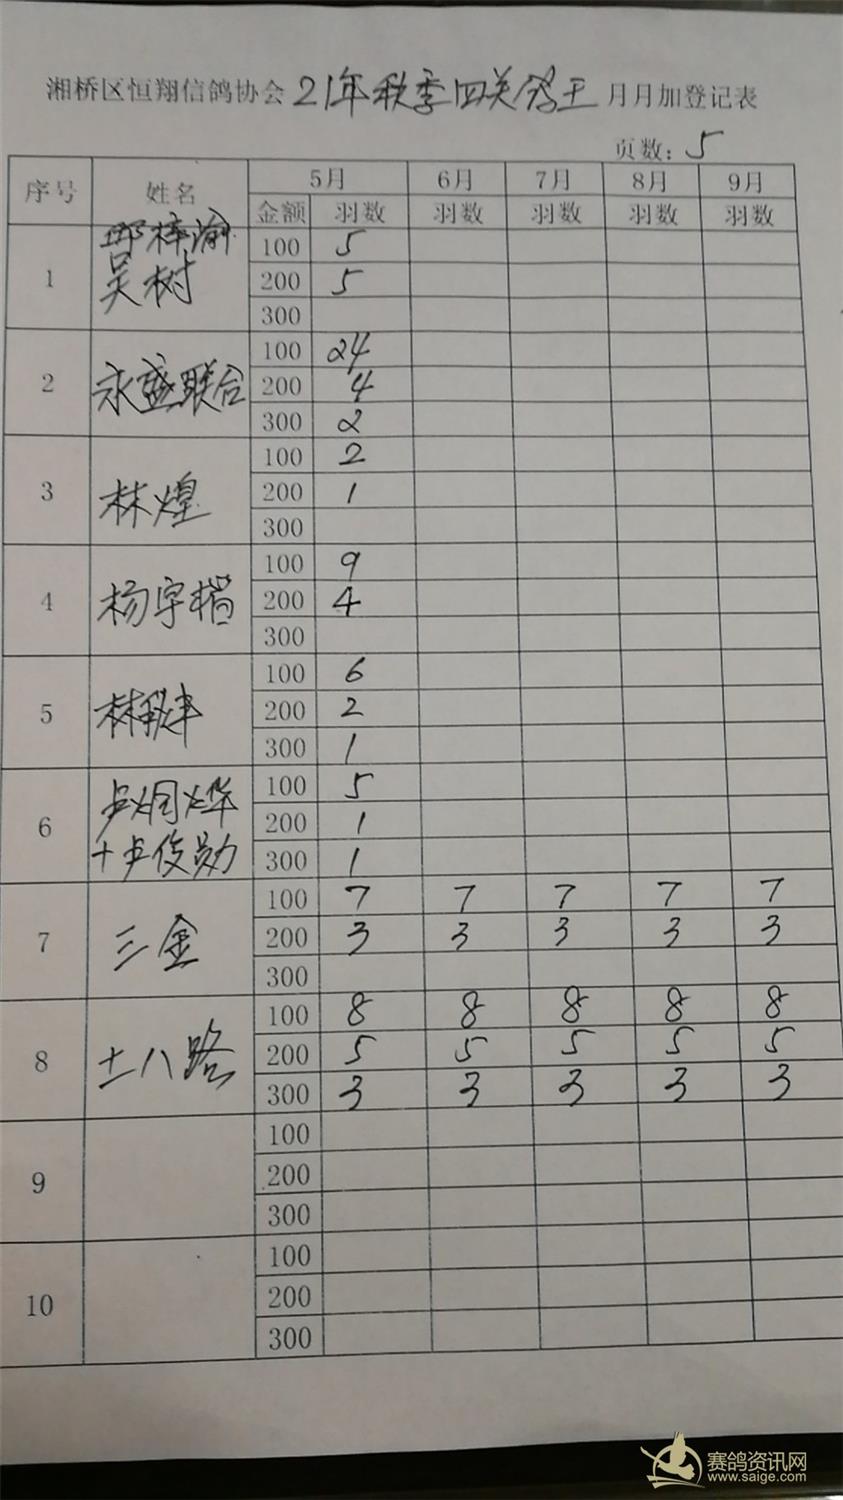 湘桥区恒翔信鸽协会 21年秋季四关鸽王 月月加登记表
页数: 5
序号 姓名 5月 6月 7月 8月 9月
金额 羽数 羽数 羽数 羽数 羽数
1 吴树
100 5
200 5
300
2 永盛联合
100 24
200 4
300 2
3 林煌
100 2
200 1
300
4 杨宇楷
100 9
200 4
300
5 林
100 6
200 2
300 1
6 卢炯烨
+卢俊勋
100 5
200 1
300 1
7 三金
100 7 7 7 7 7
200 3 3 3 3 3
300
8 十八路
100 8 8 8 8 8
200 5 5 5 5 5
300 3 3 3 3 3
9
100
200
300
10
100
200
300
赛鸽资讯网
www.saige.com